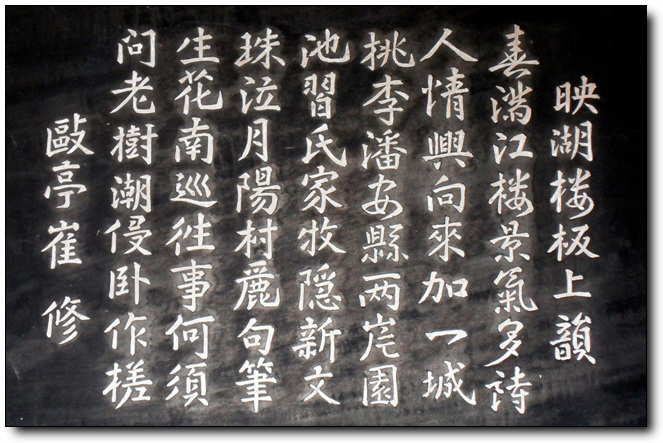 映湖楼板上韻
春滿江楼景氣多詩
人情興向來加一城
桃李潘安縣两岸園
池習氏家牧隐新文
珠泣月陽村麗句筆
生花南巡往事何須
问老樹潮侵卧作槎
毆亭崔修